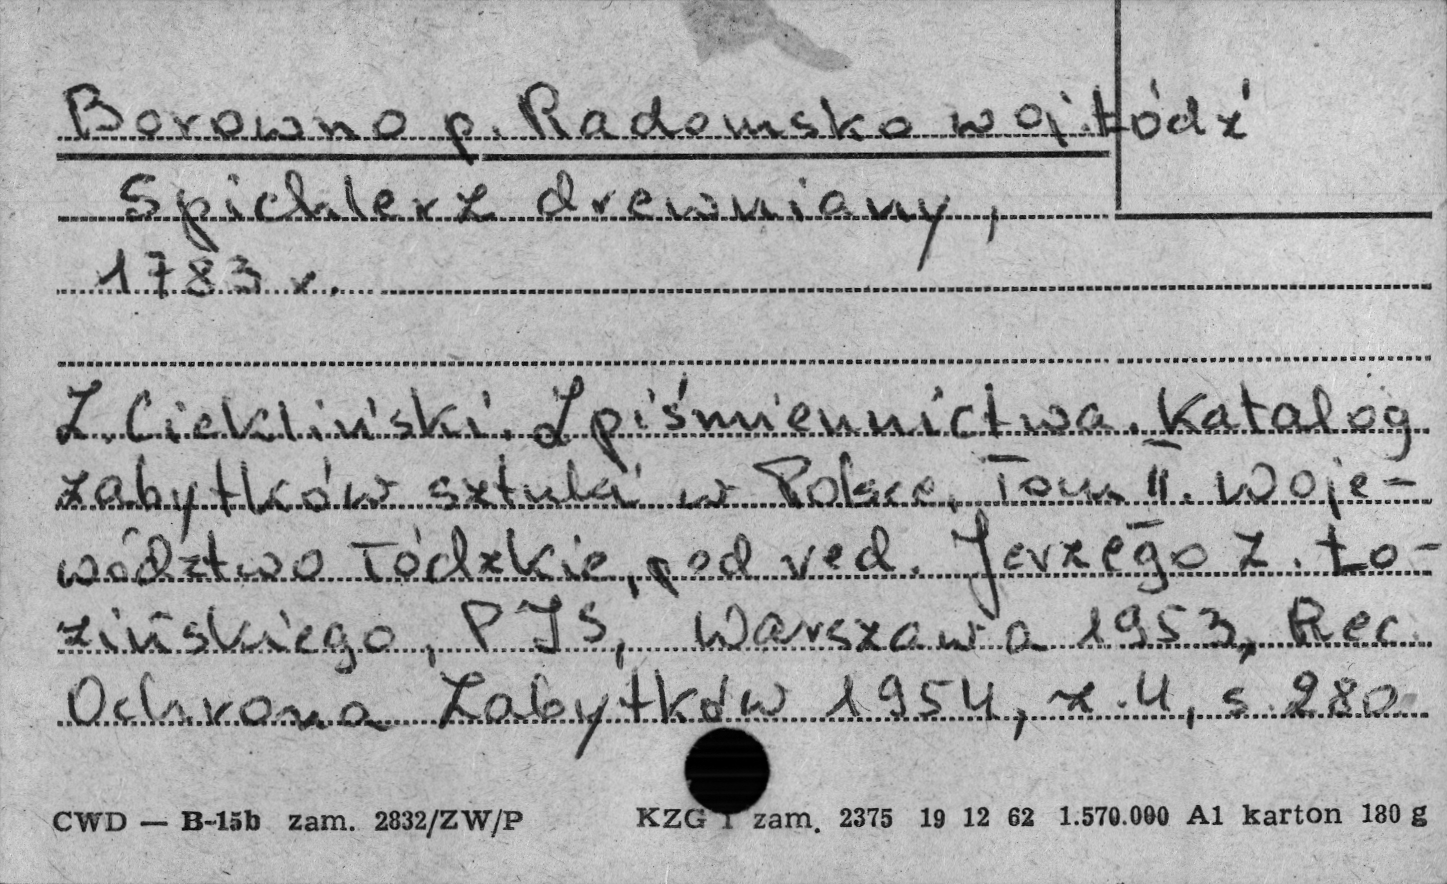 Borowno p. Radomsko woj. Łódź
Spichlerz drewniany,
1783 r.
Z. Ciekliński. Z piśmiennictwa. Katalog
zabytków sztuki w Polsce, Tom II. Woje-
wództwo łódzkie, pod red. Jerzego Z. Ło-
zińskiego, PIS, Warszawa 1953, Rec.
Ochrona Zabytków 1954, z. 4, s. 280.
CWD — B-15b zam. 2832/ZW/P KZG 1 zam. 2375 19 12 62 1.570.000 A1 karton 180 g